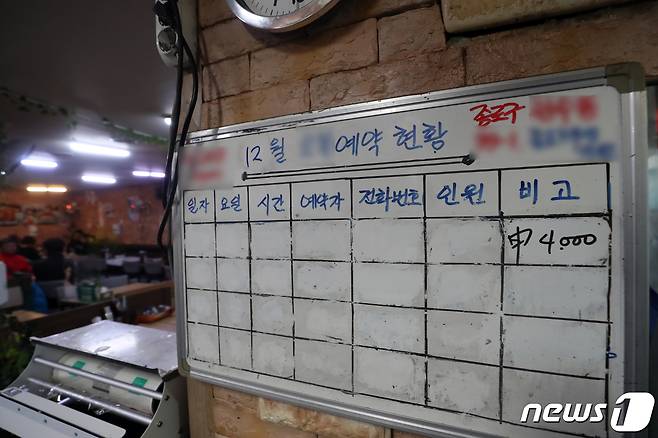 12월 예약 현황
종로구
일자 요일 시간 예약자 전화번호 인원 비고
4.000
news1